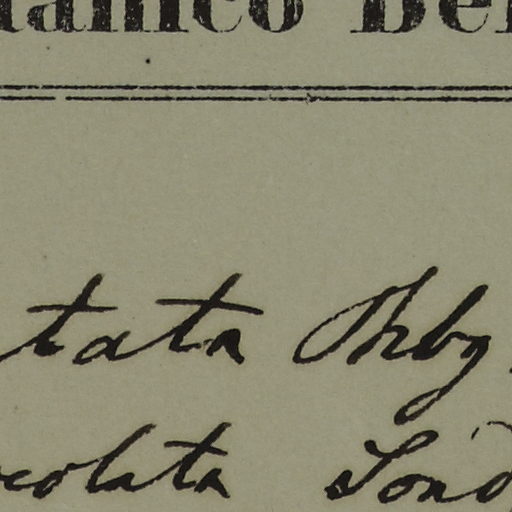 tanico Ber
tata Thbg
colata Sond